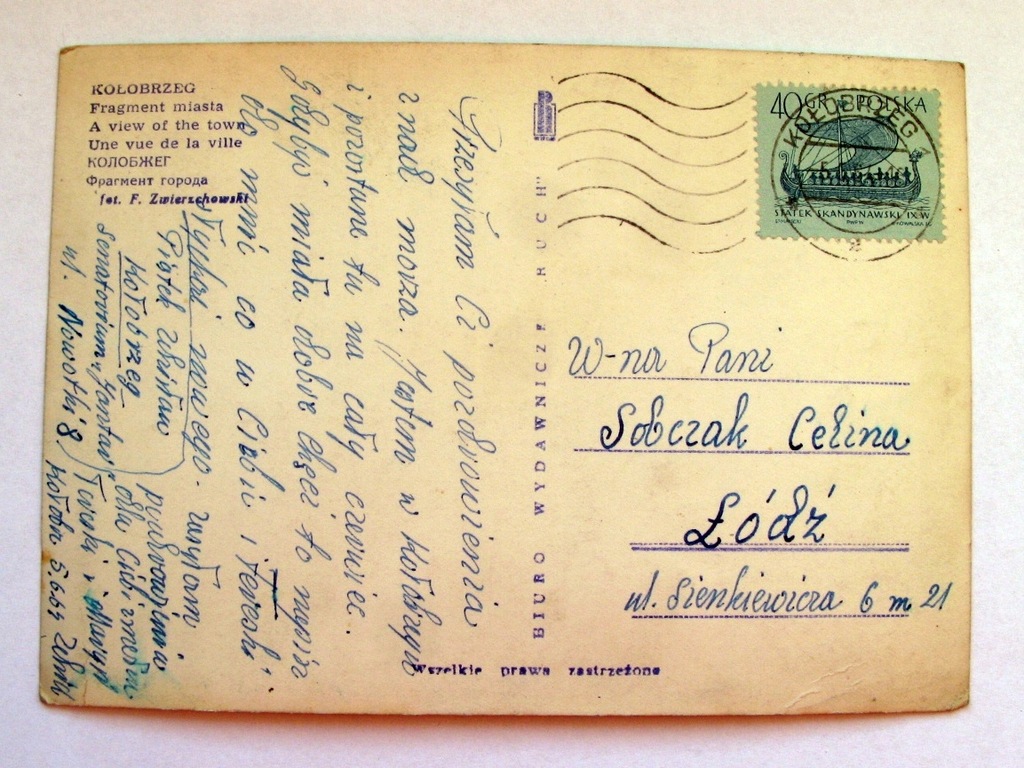 KOŁOBRZEG
Fragment miasta
A view of the town
Une vue de la ville
КОЛОБЖЕГ
Фрагмент города
fot. F. Zwierzchowski
Przesyłam Ci pozdrowienia
znad morza. Jestem w Kołobrzegu
i pozostanę tu na cały czerwiec.
Gdybyś miała dobre chęci to napisz
do mnie co u Ciebie i Tereski
słychać nowego.
Piątek Zbigniew
Kołobrzeg
Sanatorium
ul. Nowotki 8
pozdrowienia
dla Ciebie
Tereski i
BIURO WYDAWNICZE „RUCH"
Wszelkie prawa zastrzeżone
40 GR POLSKA
STATEK SKANDYNAWSKI IX W
PWPW
KOŁOBRZEG 1
W-na Pani
Sobczak Celina
Łódź
ul. Sienkiewicza 6 m. 21